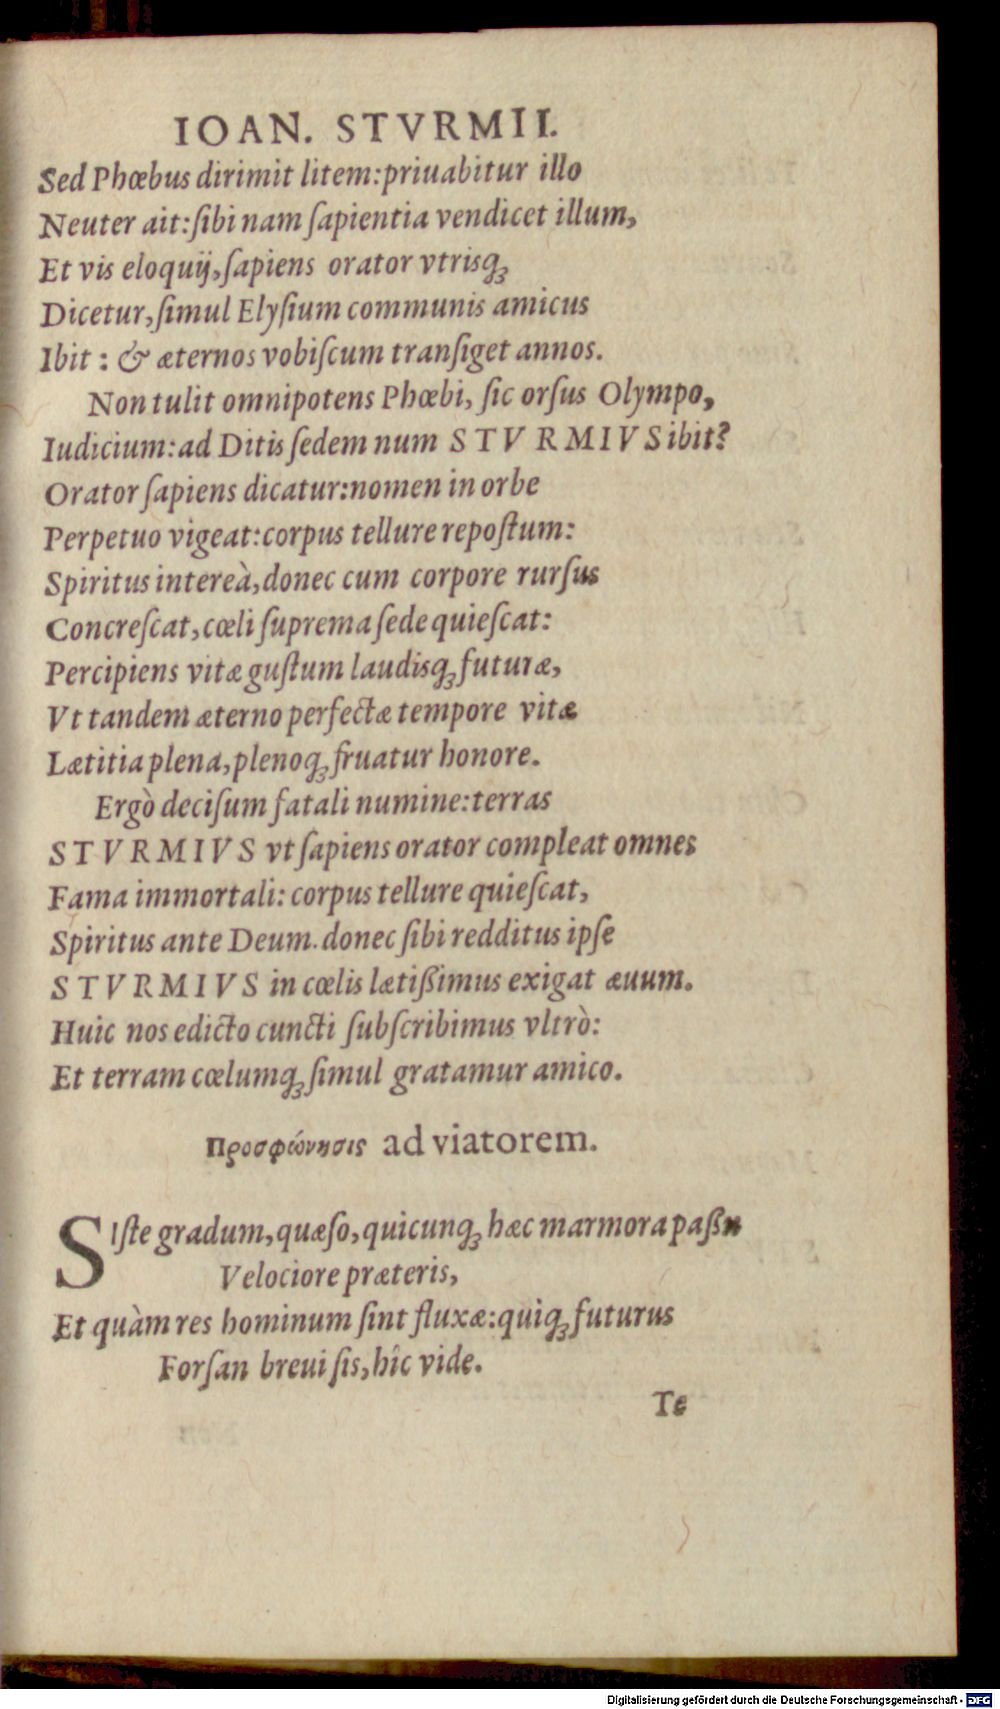 IOAN. STVRMII.
Sed Phœbus dirimit litem:priuabitur illo
Neuter ait:ſibi nam ſapientia vendicet illum,
Et vis eloquij,ſapiens orator vtrisq́ꝫ
Dicetur,ſimul Elyſium communis amicus
Ibit : & æternos vobiſcum tranſiget annos.
Non tulit omnipotens Phœbi, ſic orſus Olympo,
Iudicium:ad Ditis ſedem num STVRMIVS ibit?
Orator ſapiens dicatur:nomen in orbe
Perpetuo vigeat:corpus tellure repoſtum:
Spiritus intereà,donec cum corpore rurſus
Concreſcat,cœli ſuprema ſede quieſcat:
Percipiens vitæ guſtum laudisq́ꝫ futuræ,
Vt tandem æterno perfectæ tempore vitæ
Lætitia plena,plenoq́ꝫ fruatur honore.
Ergò deciſum fatali numine:terras
STVRMIVS vt ſapiens orator compleat omnes
Fama immortali: corpus tellure quieſcat,
Spiritus ante Deum.donec ſibi redditus ipſe
STVRMIVS in cœlis lætißimus exigat æuum.
Huic nos edicto cuncti ſubſcribimus vltrò:
Et terram cœlumq́ꝫ ſimul gratamur amico.
Προσφώνησις ad viatorem.
SIſte gradum,quæſo,quicunq́ꝫ hæc marmora paßu
Velociore præteris,
Et quàm res hominum ſint fluxæ:quiq́ꝫ futurus
Forſan breui ſis,hîc vide.
Te
Digitalisierung gefördert durch die Deutsche Forschungsgemeinschaft - DFG